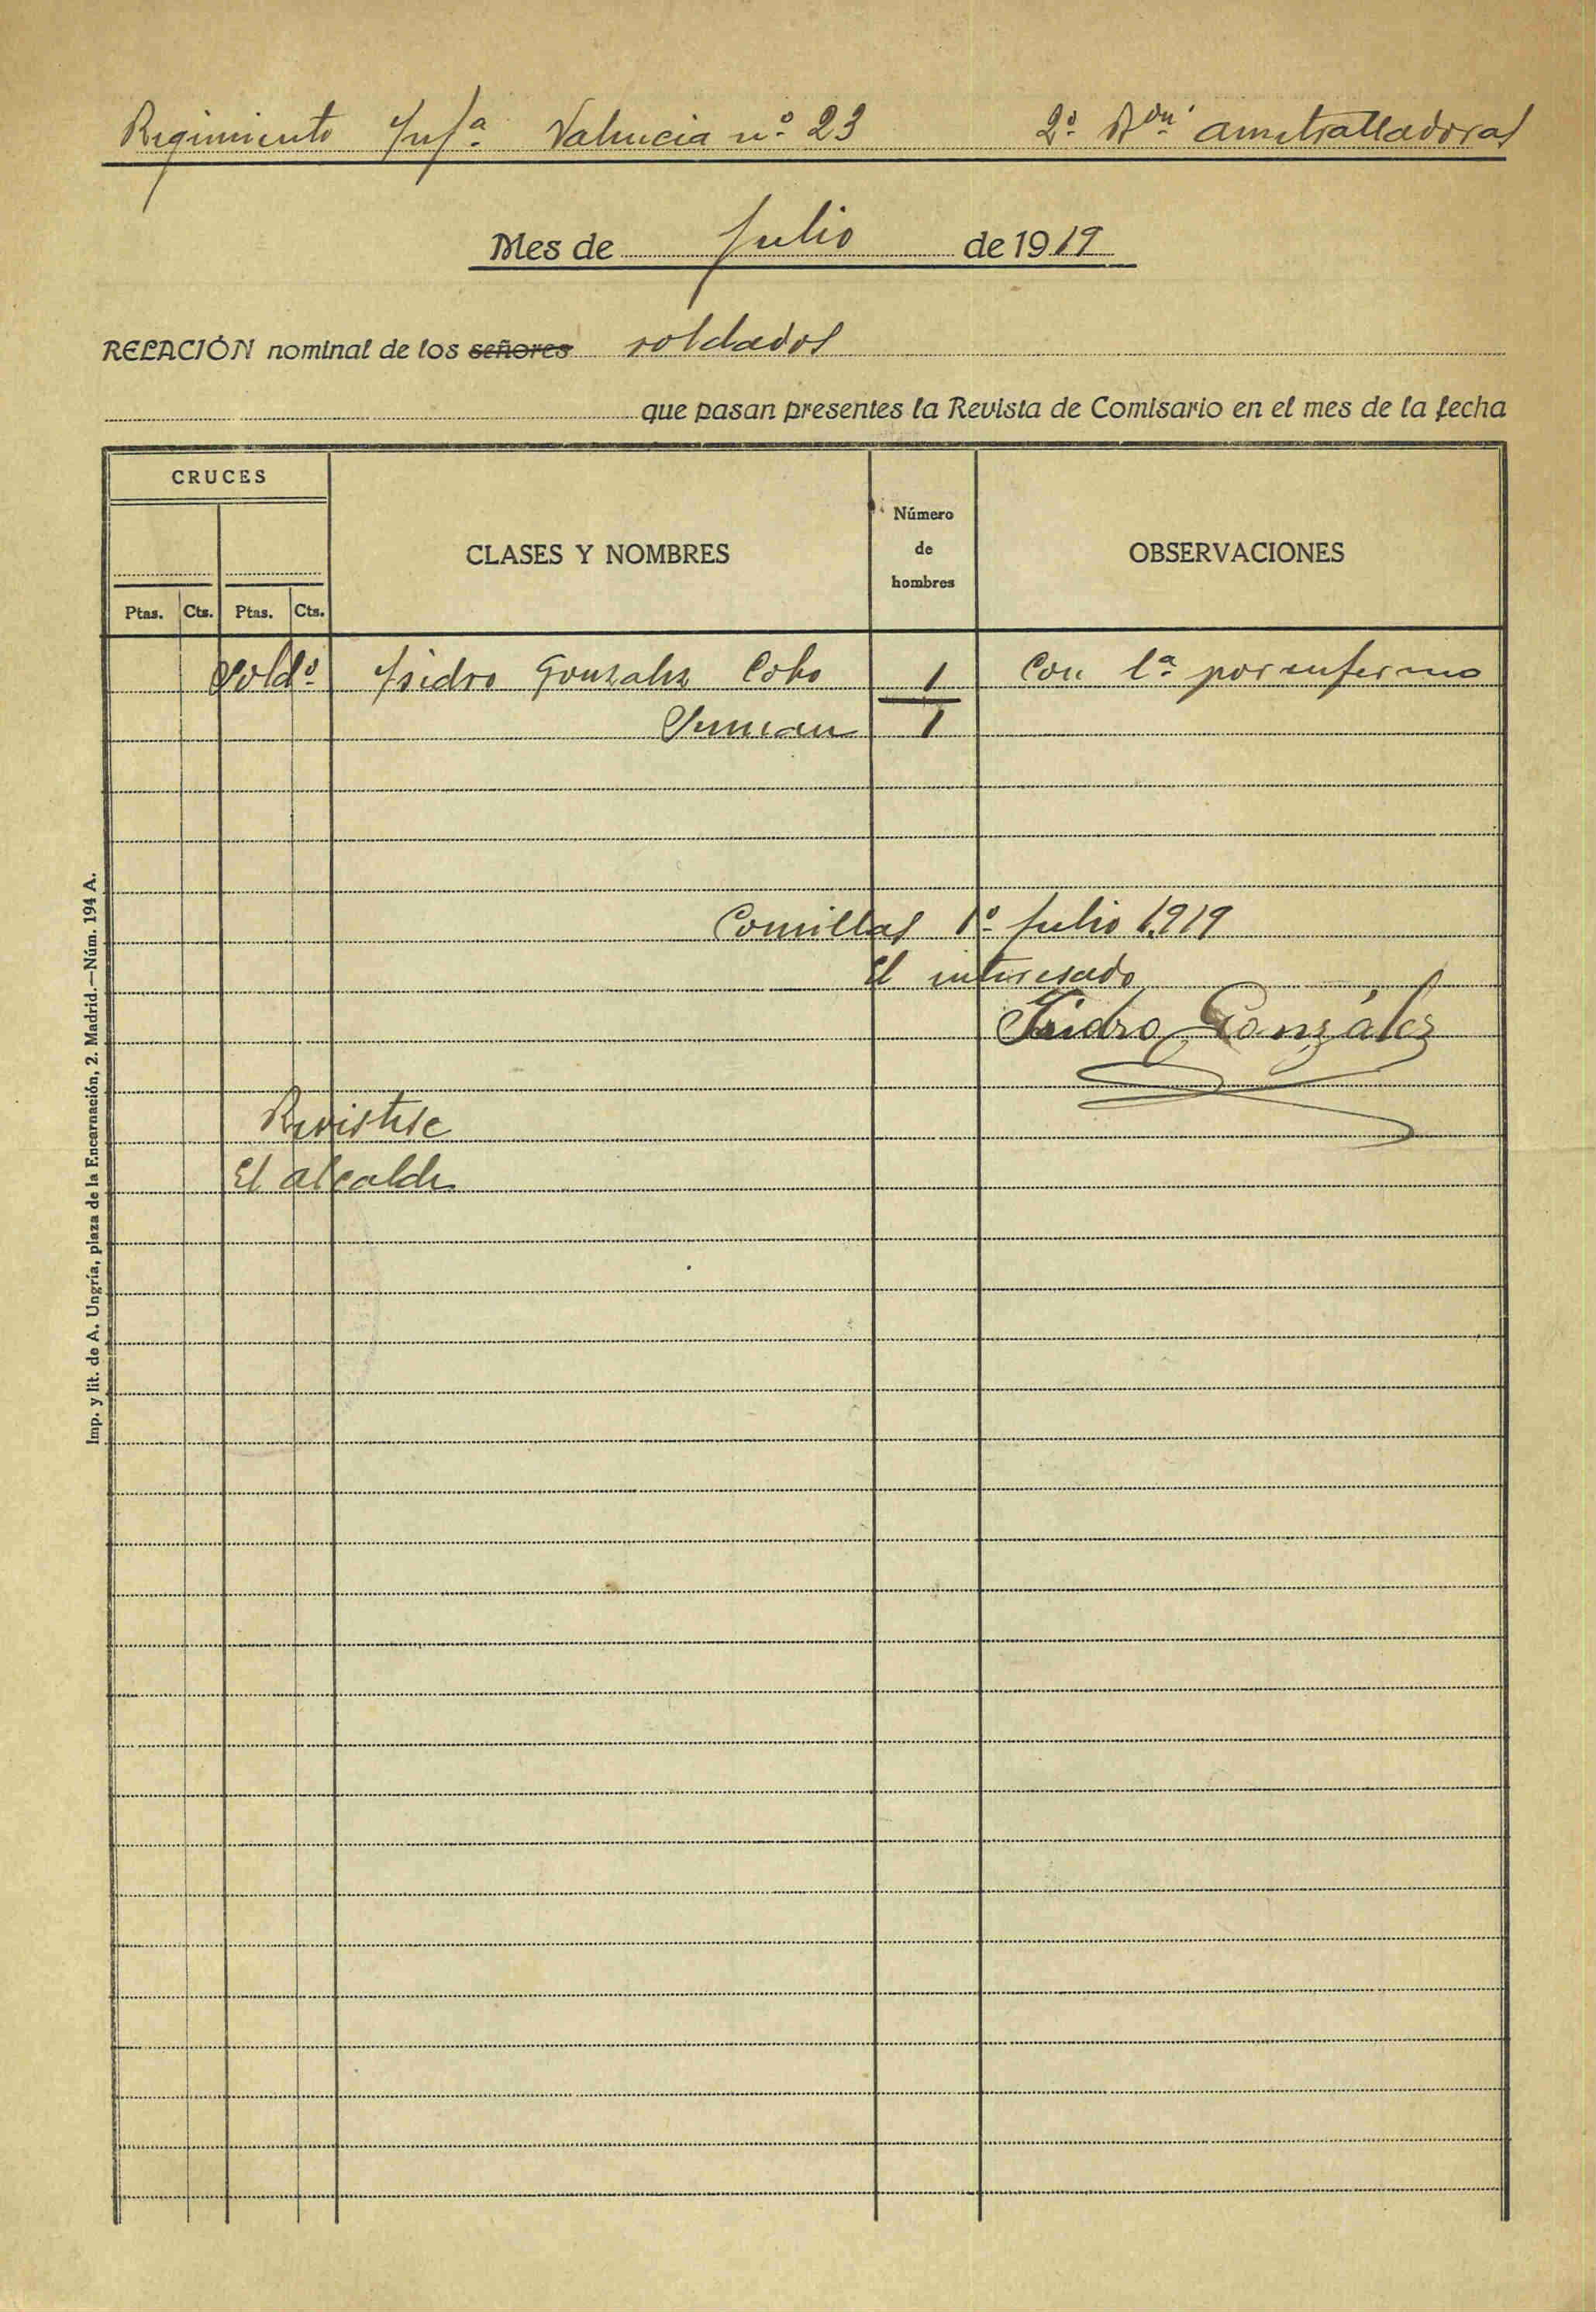 Regimiento Infª Valencia nº 23 2º Bón ametralladoras
Mes de Julio de 1919
RELACIÓN nominal de los señores soldados
que pasan presentes la Revista de Comisario en el mes de la fecha
CRUCES
CLASES Y NOMBRES
Número
de
hombres
OBSERVACIONES
Ptas. Cts. Ptas. Cts.
Soldº Isidro Gonzalez Cobo 1 Con lª por enfermo
Suman 1
Comillas 1º Julio 1919
El interesado
Isidro González
Revistese
El alcalde
Imp. y lit. de A. Ungría, plaza de la Encarnación, 2. Madrid.—Núm. 194 A.